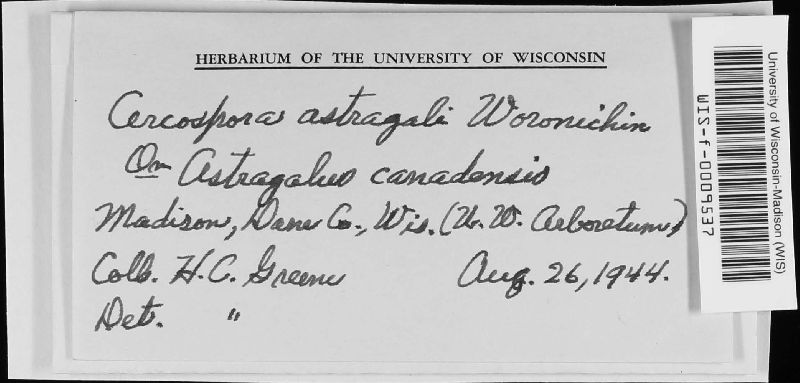 HERBARIUM OF THE UNIVERSITY OF WISCONSIN
Cercospora astragali Woronichin
On Astragalus canadensis
Madison, Dane Co., Wis. (U. W. Arboretum)
Coll. H. C. Greene
Aug. 26, 1944.
Det. "
University of Wisconsin-Madison (WIS)
WIS-f-0009537